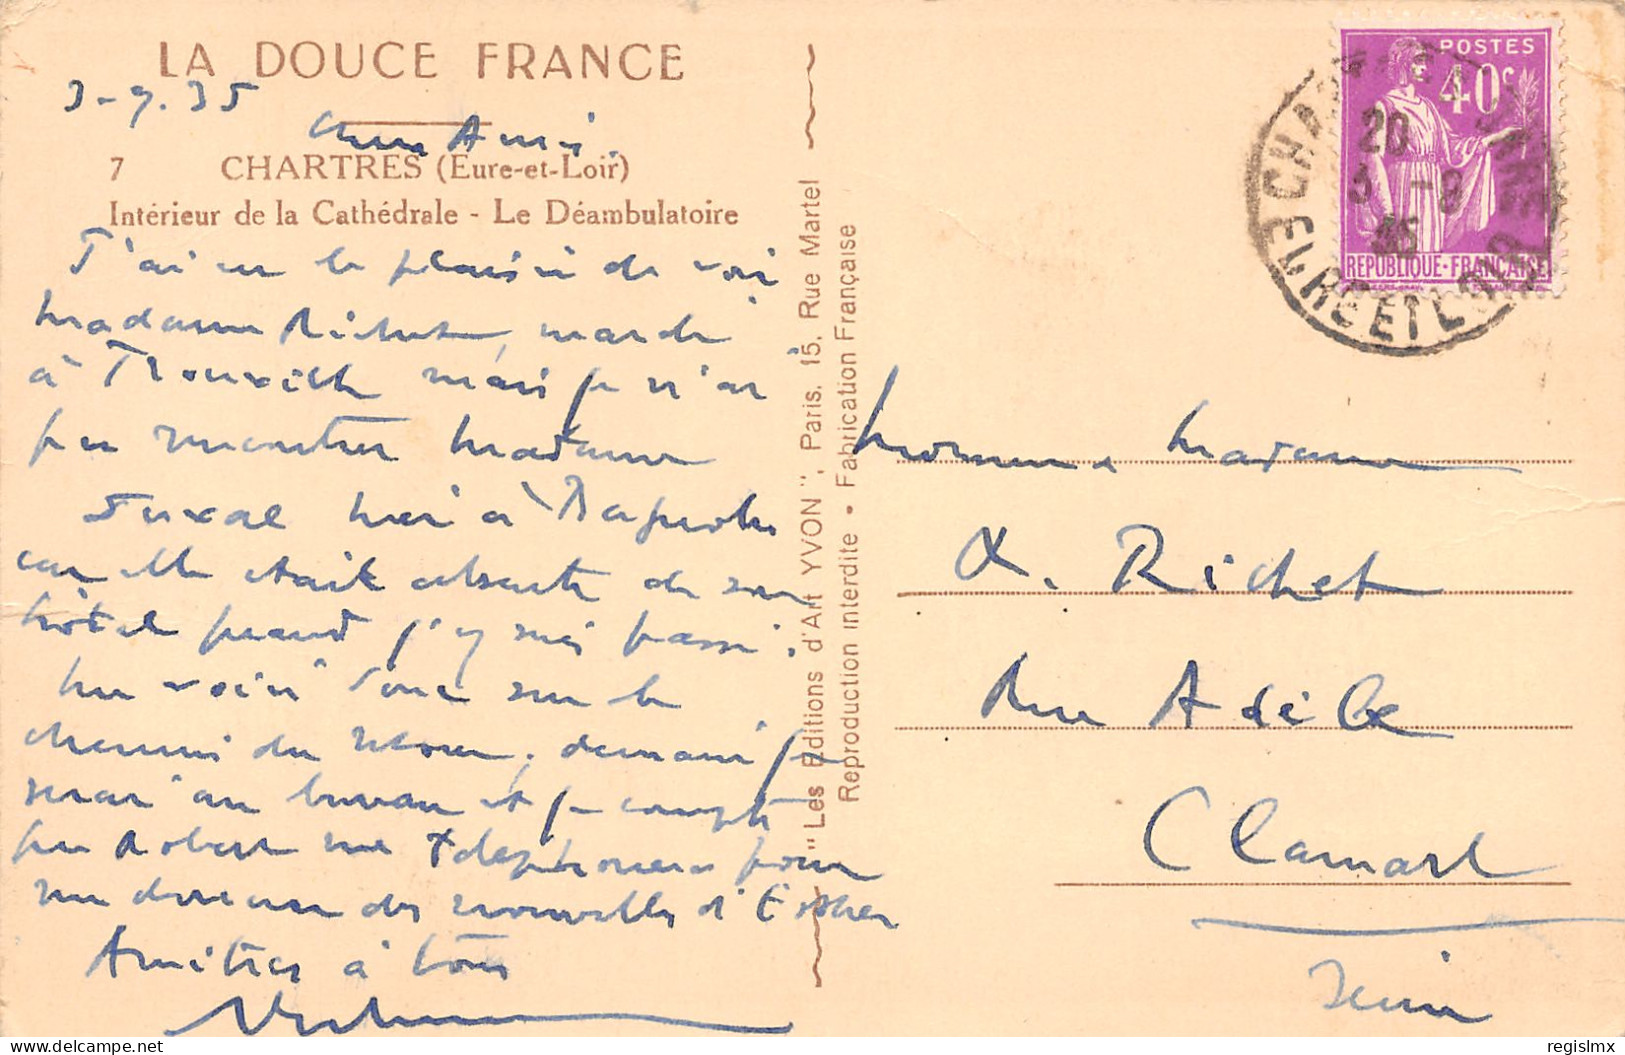 LA DOUCE FRANCE
3-9.35
Chers Amis.
7 CHARTRES (Eure-et-Loir)
Intérieur de la Cathédrale - Le Déambulatoire
J'ai eu le plaisir de voir
Madame Richet, mardi
à Trouville mais je n'ai
pu rencontrer Madame
Duval hier à Bagnoles
car elle était absente de son
hôtel quand j'y suis passé.
Me voici donc sur le
chemin du retour, demain je
serai au bureau et je compte
que Robert me téléphonera pour
me donner des nouvelles d'Esther
Amitiés à tous
"Les Editions d'Art YVON", Paris, 15, Rue Martel
Reproduction interdite • Fabrication Française
POSTES
40c
REPUBLIQUE-FRANÇAISE
CHARTRES GARE
20
3 -9
35
EURE ET LOIR
Monsieur Madame
Richet
Rue Adèle
Clamart
Seine
regislmx
delcampe.net